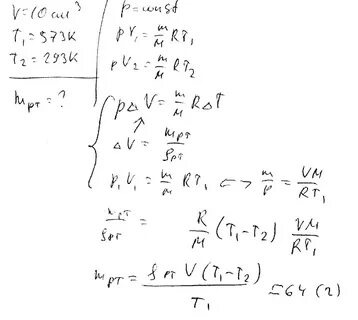 V = 10 см³
T₁ = 573K
T₂ = 293K
m рт = ?
p = const
pV₁ = m/M RT₁
pV₂ = m/M RT₂
p△V = m/M R△T
△V = m рт/ρ рт
p₁V₁ = m/M RT₁ <=> m/p = VM/RT₁
m рт/ρ рт = R/M (T₁-T₂) VM/RT₁
m рт = ρ рт V (T₁-T₂)/T₁ = 64 (г)